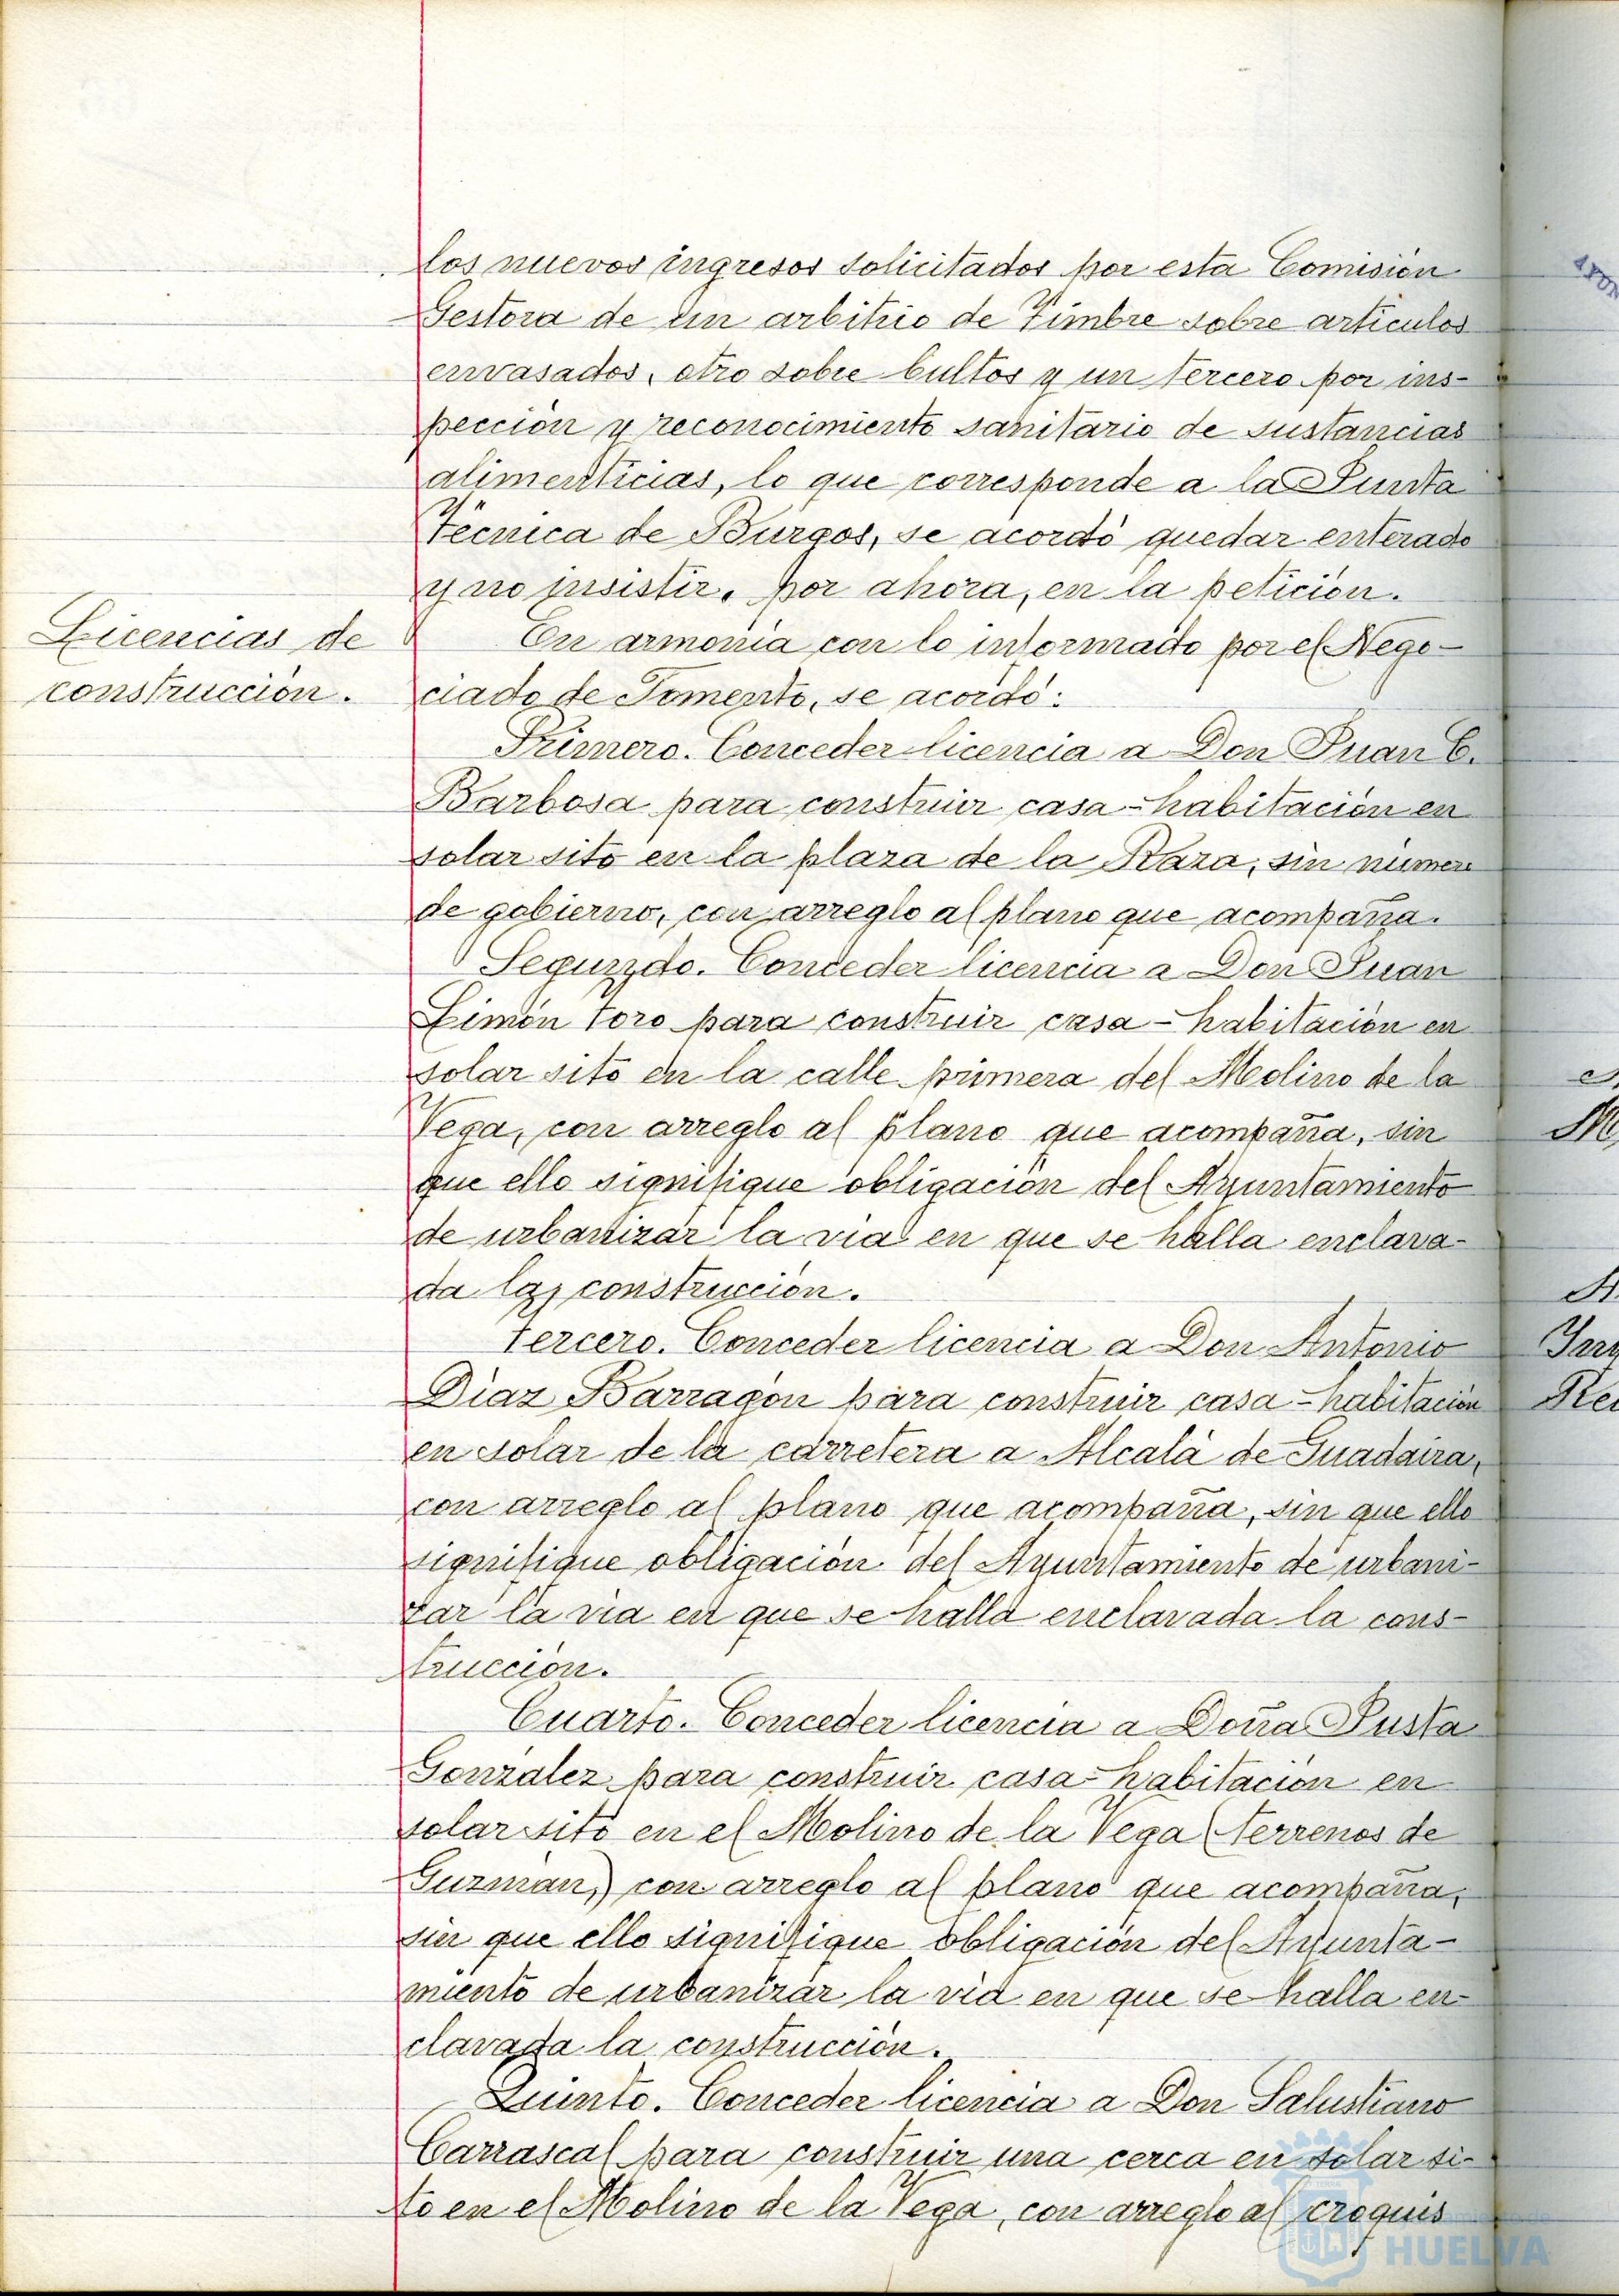 los nuevos ingresos solicitados por esta Comisión
Gestora de un arbitrio de Timbre sobre articulos
envasados, otro sobre bultos y un tercero por ins-
pección y reconocimiento sanitario de sustancias
alimenticias, lo que corresponde a la Junta
Técnica de Burgos, se acordó quedar enterado
y no insistir, por ahora, en la petición.
Licencias de
construcción.
En armonía con lo informado por el Nego-
ciado de Fomento, se acordó:
Primero. Conceder licencia a Don Juan C.
Barbosa para construir casa-habitación en
solar sito en la plaza de la Raza, sin número
de gobierno, con arreglo al plano que acompaña.
Segundo. Conceder licencia a Don Juan
Limón Toro para construir casa-habitación en
solar sito en la calle primera del Molino de la
Vega, con arreglo al plano que acompaña, sin
que ello signifique obligación del Ayuntamiento
de urbanizar la vía en que se halla enclava-
da la construcción.
Tercero. Conceder licencia a Don Antonio
Díaz Barragón para construir casa-habitación
en solar de la carretera a Alcalá de Guadaira,
con arreglo al plano que acompaña, sin que ello
signifique obligación del Ayuntamiento de urbani-
zar la vía en que se halla enclavada la cons-
trucción.
Cuarto. Conceder licencia a Doña Justa
González para construir casa-habitación en
solar sito en el Molino de la Vega (terrenos de
Guzmán,) con arreglo al plano que acompaña,
sin que ello signifique obligación del Ayunta-
miento de urbanizar la vía en que se halla en-
clavada la construcción.
Quinto. Conceder licencia a Don Salustiano
Carrascal para construir una cerca en solar si-
to en el Molino de la Vega, con arreglo al croquis
HUELVA